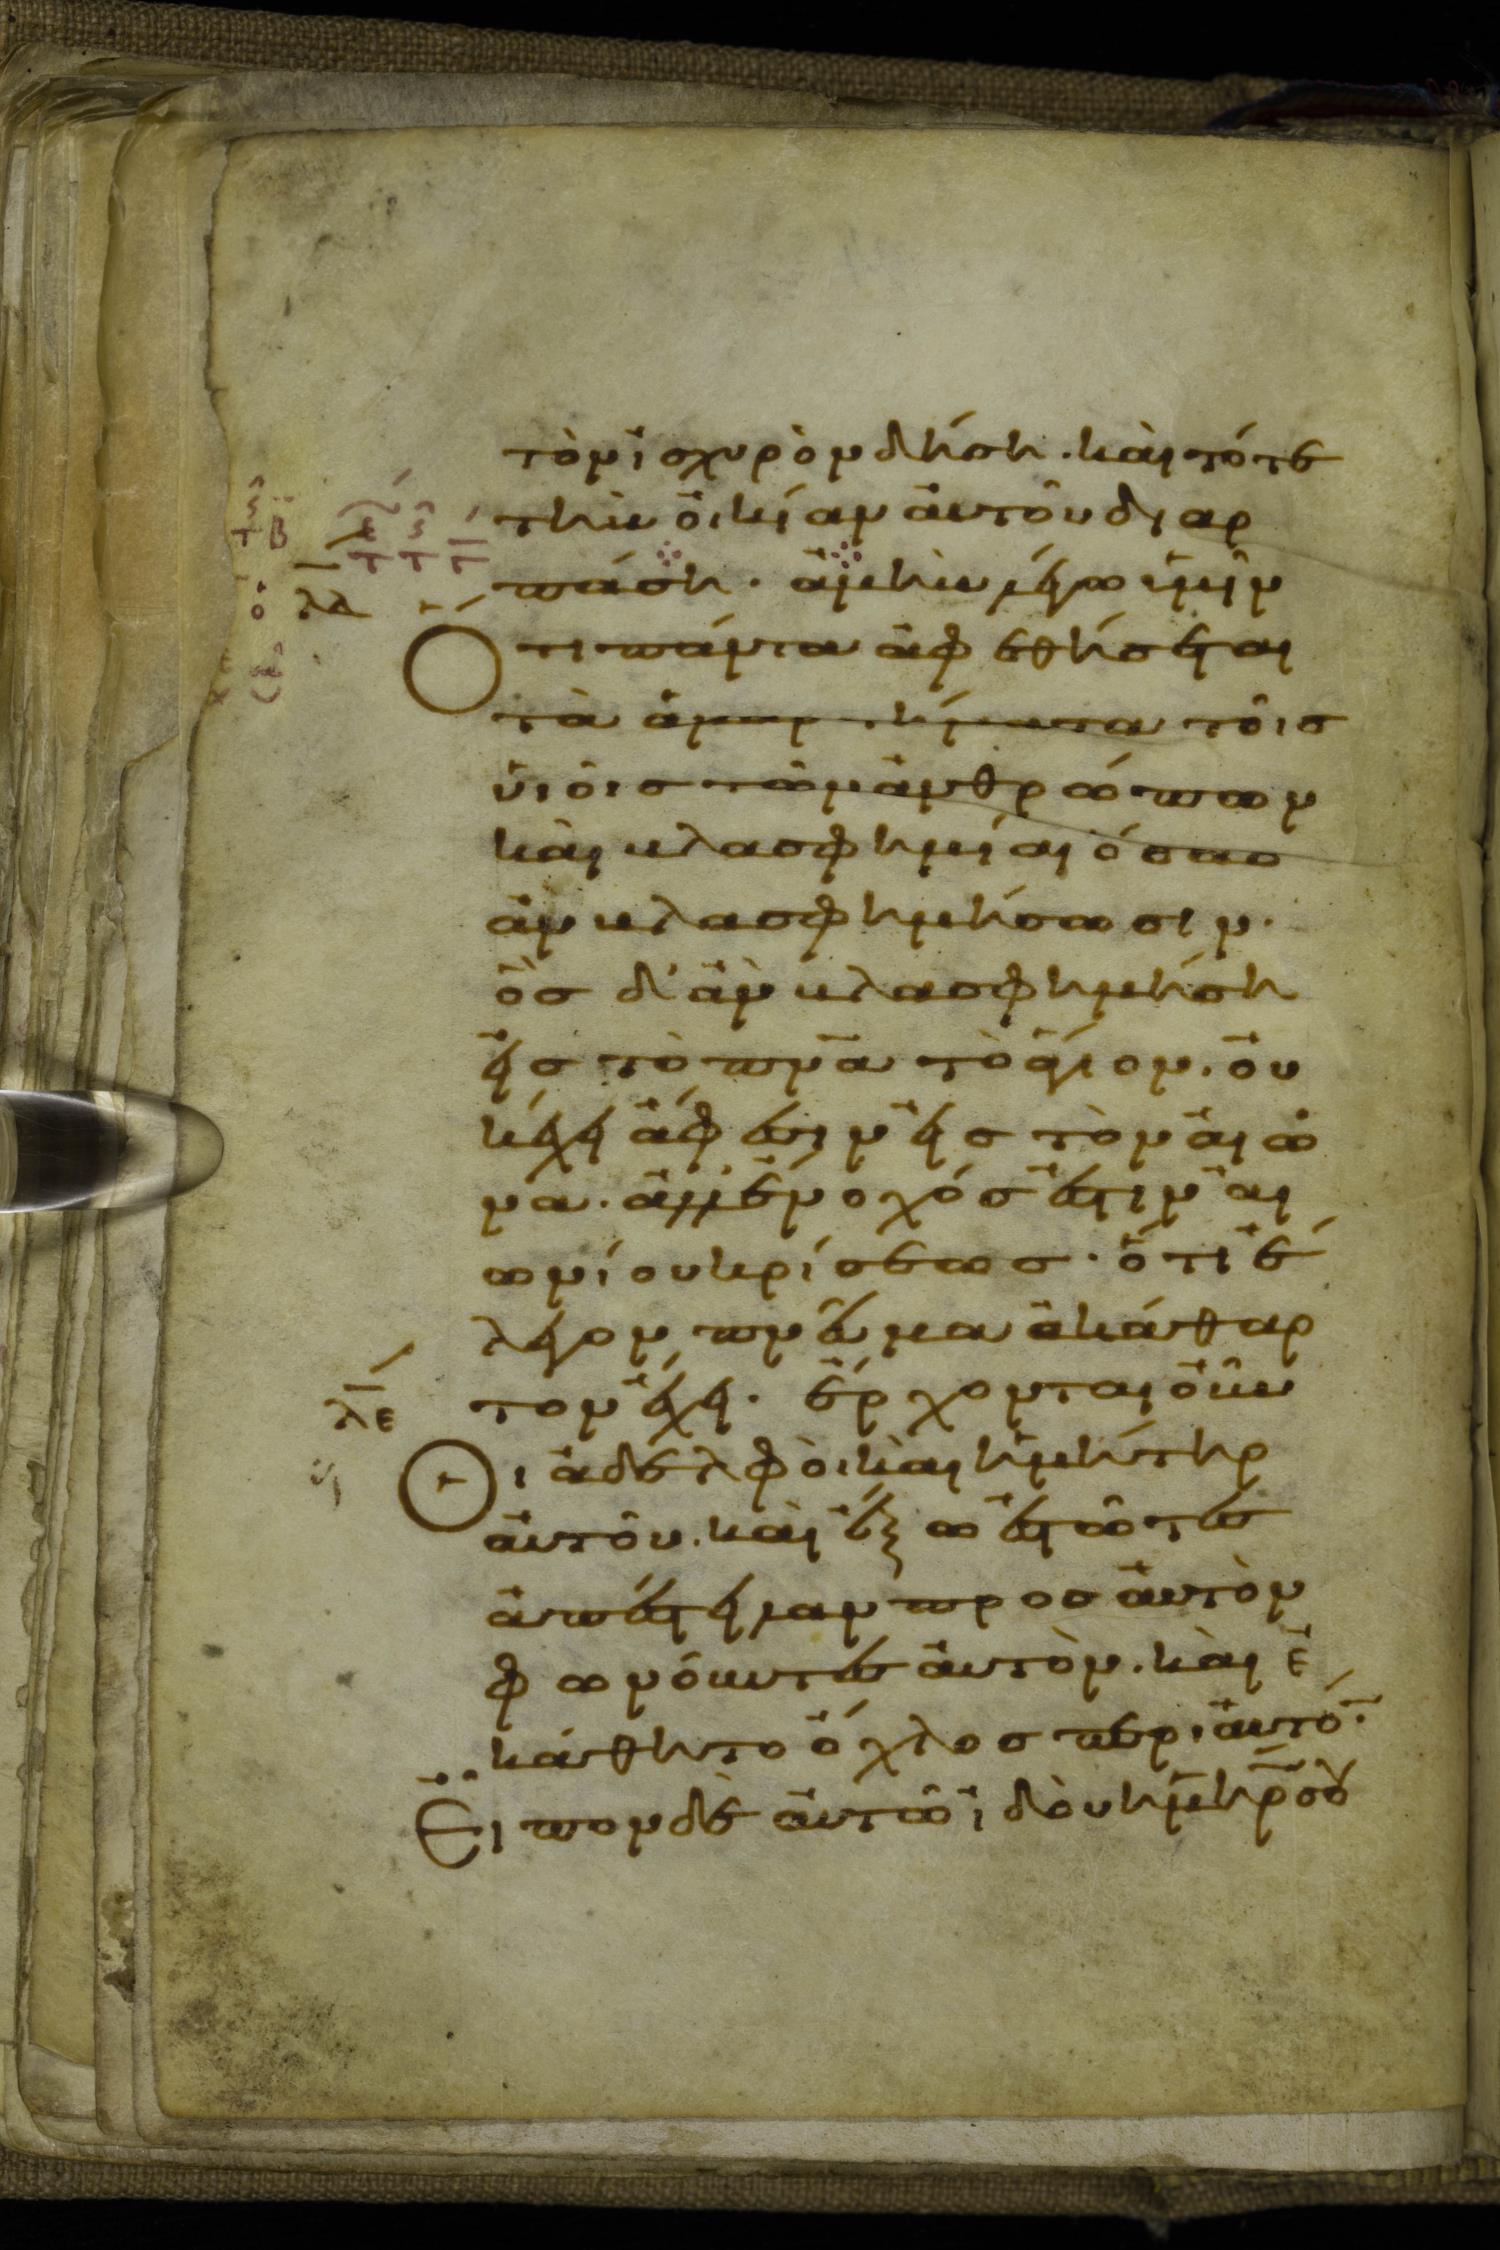 τὸν ἰσχυρὸν δήσῃ. καὶ τότε
τὴν ὀικίαν ἀυτοῦ διαρ
πάσῃ. ἀμὴν λέγω ὑμῖν
λδ
Ὅτι πάντα ἀφεθήσεται
τὰ ἁμαρτήματα τοῖς
ὑιοῖς τῶν ἀνθρώπων
καὶ βλασφημίαι ὅσας
ἂν βλασφημήσωσιν.
ὃς δ' ἂν βλασφημήση
εἰς τὸ πνα τὸ ἅγιον. οὐ
κ ἔχει ἄφεσιν εἰς τὸν αἰῶ
να. ἀλλ' ἔνοχός ἐστιν αἰ
ωνίου κρίσεως. ὅτι ἔ
λεγον πνεῦμα ἀκάθαρ
τον ἔχει. ἔρχονται οὖν
λε
Οι ἀδελφὸι καὶ ἡ μήτηρ
ἀυτοῦ. καὶ ἔξω ἑστῶτες
ἀπέστειλαν προς ἀυτὸν
φωνοῦντες ἀυτὸν. καὶ ἐ
κάθητο ὄχλος περι ἀυτό.
Εἶπον δὲ ἀυτῶ ἰδοὺ ἡ μηρ σου